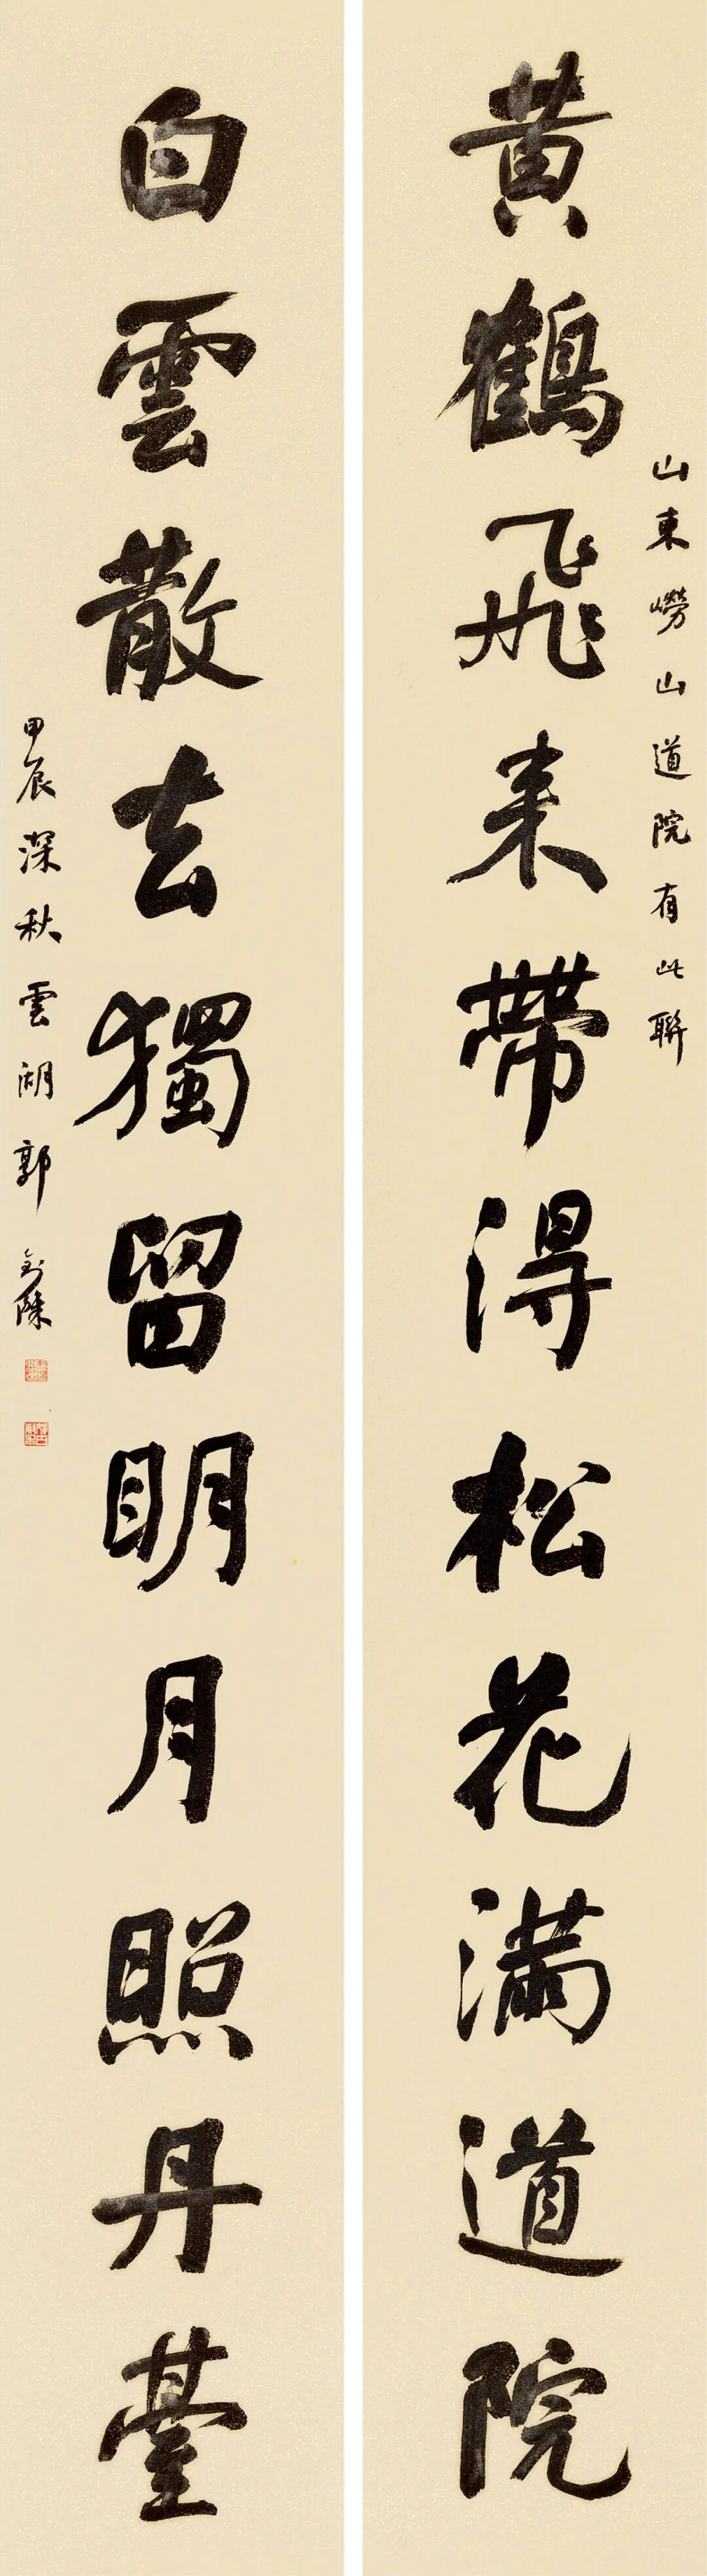 山東嶗山道院有此聯
黃鶴飛来帶得松花滿道院
白雲散去獨留明月照丹臺
甲辰深秋雲湖郭